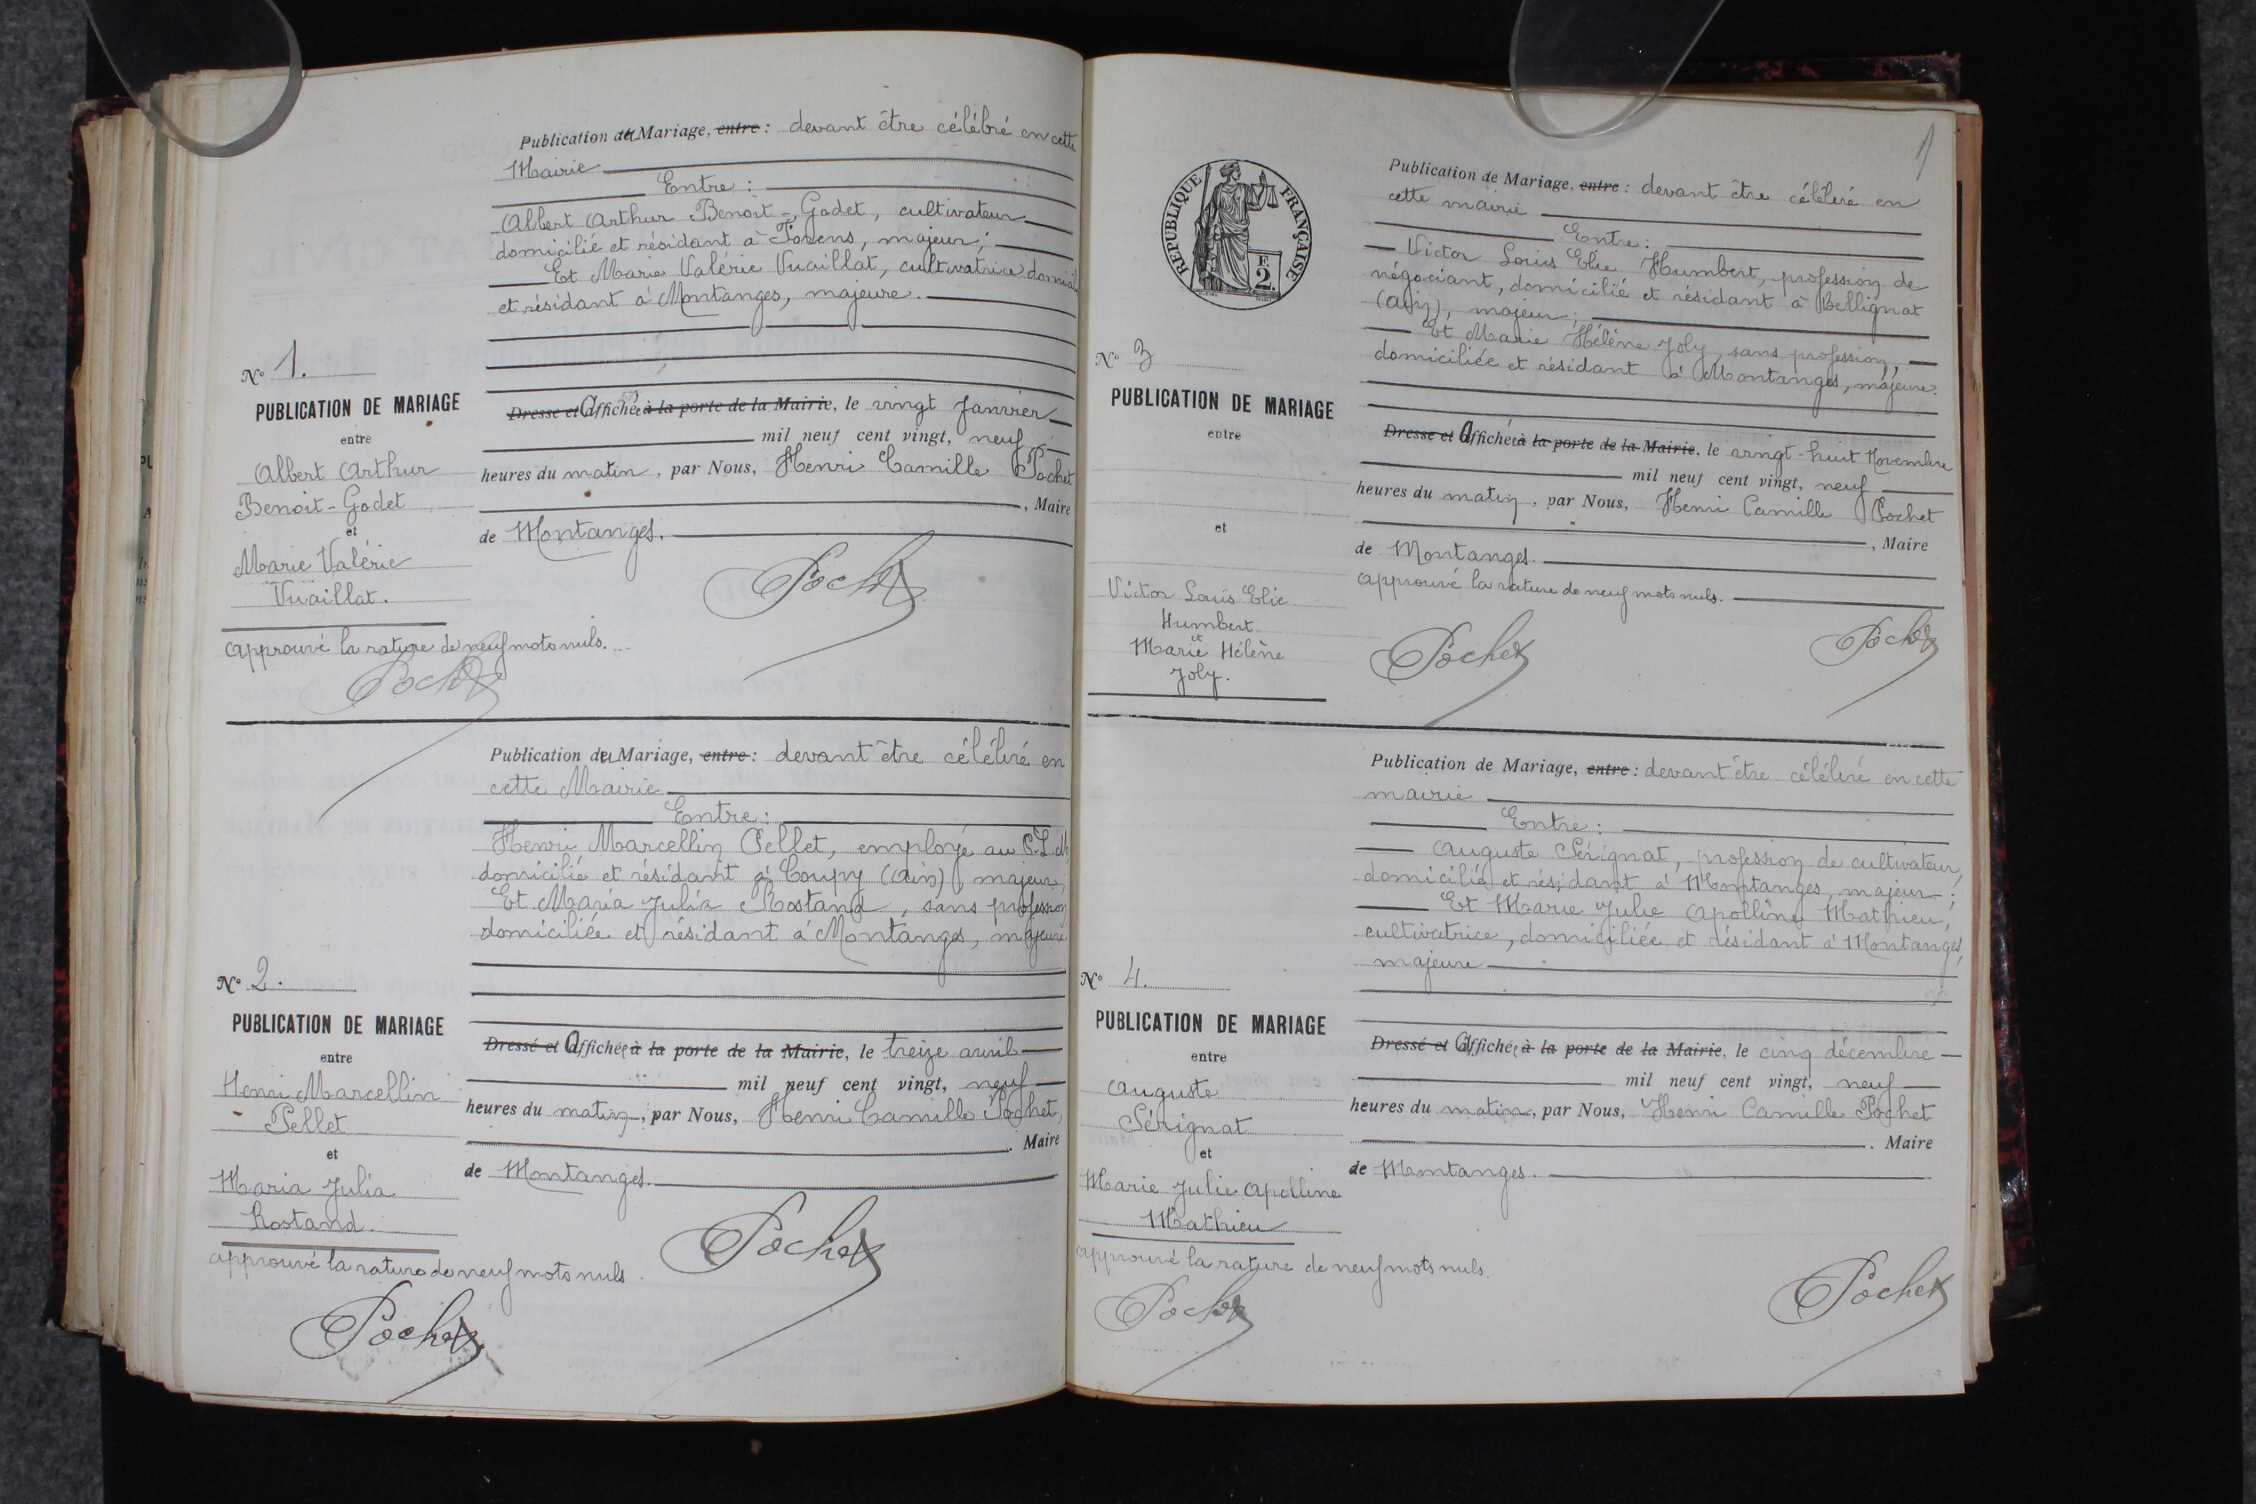 Publication du Mariage, entre : devant être célébré en cette
Mairie
Entre :
Albert Arthur Benoit-Godet, cultivateur
domicilié et résidant à Forens, majeur ;
Et Marie Valérie Vuaillat, cultivatrice
et résidant à Montanges, majeure.
N° 1.
PUBLICATION DE MARIAGE
entre
Albert Arthur
Benoit-Godet
et
Marie Valérie
Vuaillat.
Approuvé la rature de neuf mots nuls.
Pochet
Dressé et Affichée à la porte de la Mairie, le vingt Janvier
mil neuf cent vingt, neuf
heures du matin, par Nous, Henri Camille Pochet
, Maire
de Montanges.
Pochet
Publication du Mariage, entre : devant être célébré en
cette Mairie
Entre :
Henri Marcellin Pellet, employé au P.L.M,
domicilié et résidant à Coupy (Ain), majeur,
Et Maria Julia Rostand, sans profession
domiciliée et résidant à Montanges, majeure
N° 2.
PUBLICATION DE MARIAGE
entre
Henri Marcellin
Pellet
et
Maria Julia
Rostand.
approuvé la rature de neuf mots nuls
Pochet
Dressé et Affichée à la porte de la Mairie, le treize avril
mil neuf cent vingt, neuf
heures du matin, par Nous, Henri Camille Pochet,
. Maire
de Montanges.
Pochet
1
REPUBLIQUE FRANÇAISE
F.
2.
Publication de Mariage, entre : devant être célébré en
cette mairie
Entre :
Victor Louis Elie Humbert, profession de
négociant, domicilié et résidant à Bellignat
(Ain), majeur ;
Et Marie Hélène Joly, sans profession,
domiciliée et résidant à Montanges, majeure.
N° 3
PUBLICATION DE MARIAGE
entre
et
Victor Louis Elie
Humbert
et
Marie Hélène
Joly.
Dressé et Affichée à la porte de la Mairie, le vingt-huit Novembre
mil neuf cent vingt, neuf
heures du matin, par Nous, Henri Camille Pochet
, Maire
de Montanges.
approuvé la rature de neuf mots nuls.
Pochet
Pochet
Publication de Mariage, entre : devant être célébré en cette
mairie
Entre :
Auguste Sérignat, profession de cultivateur,
domicilié et résidant à Montanges, majeur ;
Et Marie Julie Apolline Mathieu,
cultivatrice, domiciliée et résidant à Montanges,
majeure
N° 4.
PUBLICATION DE MARIAGE
entre
Auguste
Sérignat
et
Marie Julie Apolline
Mathieu
approuvé la rature de neuf mots nuls.
Pochet
Dressé et Affichée à la porte de la Mairie, le cinq décembre
mil neuf cent vingt, neuf
heures du matin, par Nous, Henri Camille Pochet
. Maire
de Montanges.
Pochet